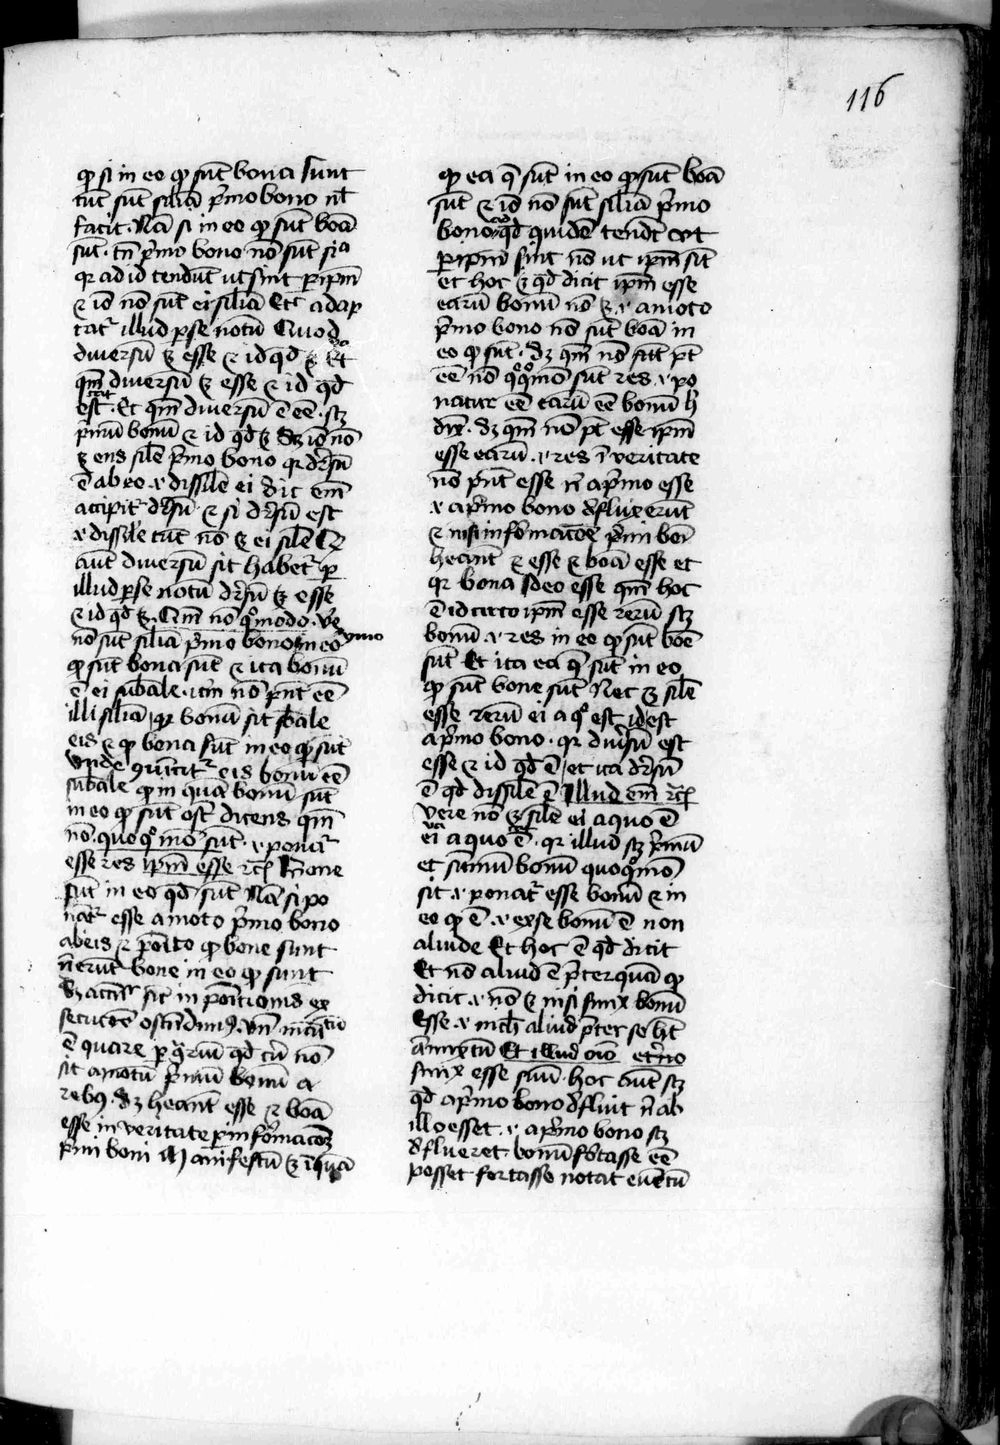 116
qp si in eo qp sūt bona sunt
tūt sūt siliā p̄mo bono nł
facit. Nā si in eo qp sūt boā
sūt. tn̄ p̄mo bono nō sūt siª
qr ad id tendūt ut sint p ipm̄
⁊ iō nō sūt ei siliā Etc̄ adap
tatr illud p se notū Quod
diversū ē esse ⁊ id qd̄
qm̄ diversū ē esse ⁊ id qd̄
est. Et qm̄ diversū ē eē. sꝫ
p̄mū bonū ⁊ id qd̄ ē sꝫ iō nō
ē ens silē p̄mo bono qr dr̄sū
ē ab eo. ⁊ dissilē ei dic em̄
accipitr dr̄sū. ⁊ si dr̄sū est
⁊ dissilē tūt nō ē ei silē Qr
aūt diversū sit habetr p
illud p se notū dr̄sū ē esse
⁊ id qd̄ ē. Qm̄ nō qºmodo. v̄e
nō sūt siliā p̄mo bono ymo in eo
qp sūt bona sūt ⁊ ita bonū
ē ei sūbale. itm̄ nō pn̄t eē
illi siliā qr bonū sit sb̄ale
eis ⁊ qp bona sūt in eo qp sūt
Vnde ꝯūcitr eis bonū eē
sūbale qp in quā bonū sūt
in eo qp sūt ost̄ dicens qm̄
nō. quoqº mō sūt. ⁊ ponātr
esse res ipm̄ esse rc̄ bone
sūt in eo qd̄ sūt Nā si po
natr esse amoto p̄mo bono
ab eis ⁊ poīto qp bone sunt
n̄ erūt bone in eo qp sunt
sꝫ sic in poītionis ex
secutōē ostendimꝰ. Vn̄
ē quare p qd̄ cū nō
sit amotū p̄mū bonū a
rebꝰ. sꝫ heānt esse ⁊ boā
esse in veritate p infōrmacōeꝫ
p̄mi boni Manifestū ē īquā
qp ea q̄ sūt in eo qp sūt boā
sūt ⁊ iō nō sūt siliā p̄mo
bono qd̄ quidē tendt̄ vt
p ipm̄ sint nō ut ipm̄ sīt
et hoc ē qd̄ dicit ipm̄ esse
earū bonū nō ē. ⁊ amoto
p̄mo bono nō sūt boā in
eo qp sūt. sꝫ qm̄ nō pt̄
eē nō qºqºmō sūt res. ⁊ po
natur eē earū eē bonū h̄
dix̄. sꝫ qm̄ nō pt̄ esse ipm̄
esse earū. ⁊ res ī veritate
nō pn̄t esse n̄ a p̄mo esse
⁊ a p̄mo bono dfluxerūt
⁊ nisi infōrmacōē p̄mi boī
heānt ⁊ esse ⁊ boā esse et
qr bona Ideo esse qm̄ hoc
ē idcirco ipm̄ esse rerū sꝫ
bonū ⁊ res in eo qp sūt boē
sūt Et ita ea q̄ sūt in eo
qp sūt bone sūt Nec ē silē
esse rerū ei a qº est idest
a p̄mo bono. qr div̄sū est
esse ⁊ id qd̄ ē et ita dr̄sū
ē qd̄ dissilē ē Illud em̄ rc̄
vere nō ē silē ei a quo ē
ei a quo ē. qr illud sꝫ p̄mū
et sūmū bonū quoqºmō
sit ⁊ ponatr esse bonū ⁊ in
eo qp ē. ⁊ ex se bonū ē non
aliude Et hoc ē qd̄ dicit
Et nō aliud ē p̄terquā qp
dicit. ⁊ nō ē nisi simpx bonū
Esse. ⁊ nich̄ aliud p̄ter se ht̄
ān̄ixtū Et illud oīo et̄no
simpx esse suū. hoc aūt sꝫ
qd̄ a p̄mo bono dfluit n̄ ab
illo esset. ⁊ a p̄mo bono sꝫ
dflueret. bonū fōrtasse eē
posset fortasse notat evētū